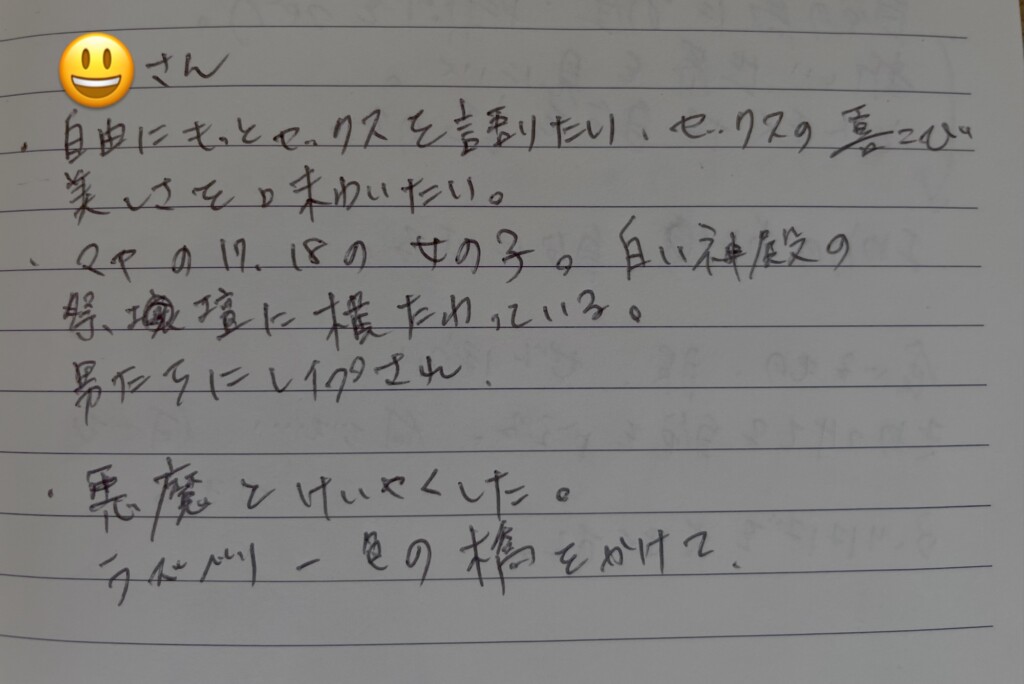 さん
・自由にもっとセックスを語りたい、セックスの喜こび
美しさを味わいたい。
・マヤの17、18の女の子。白い神殿の
祭、壇に横たわっている。
男たちにレイプされ、
・悪魔とけいやくした。
ラズベリー色の橋をかけて、